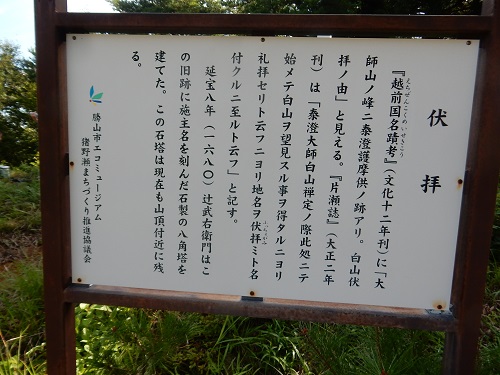 伏拝
『越前国名蹟考』（文化十二年刊）に「大
えちぜんこくめいせきこう
師山ノ峰ニ泰澄護摩供ノ跡アリ。白山伏
拝ノ由」と見える。『片瀬誌』（大正二年
刊）は「泰澄大師白山禅定ノ際此処ニテ
始メテ白山ヲ望見スル事ヲ得タルニヨリ
礼拝セリト云フニヨリ地名ヲ伏拝ミト名
付クルニ至ルト云フ」と記す。
延宝八年（一六八〇）辻武右衛門はこ
の旧跡に施主名を刻んだ石製の八角塔を
建てた。この石塔は現在も山頂付近に残
る。
勝山市エコミュージアム
猪野瀬まちづくり推進協議会